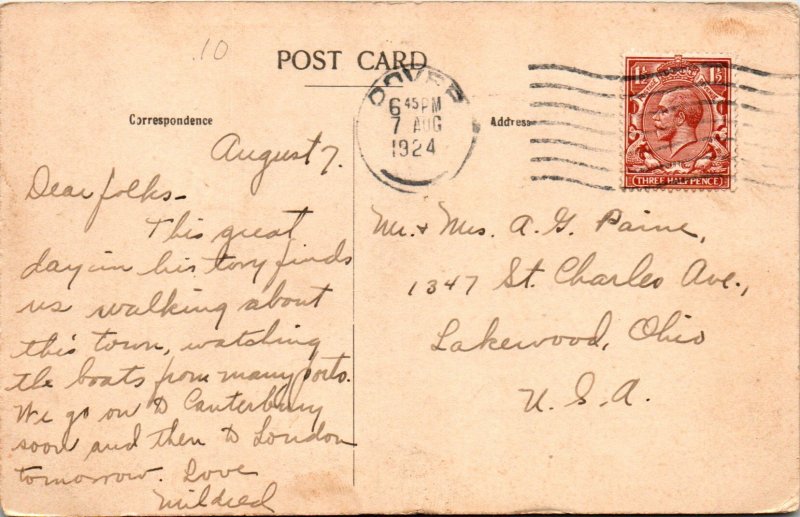 .10
POST CARD
Correspondence
Address
DOVER
6 45 PM
7 AUG
1924
1½ 1½
THREE HALF PENCE
August 7.
Dear folks-
This great
day in history finds
us walking about
this town, watching
the boats from many ports.
We go on to Canterbury
soon and then to London
tomorrow. Love
Mildred
Mr. + Mrs. A. G. Paine,
1347 St. Charles Ave.,
Lakewood, Ohio
U. S. A.